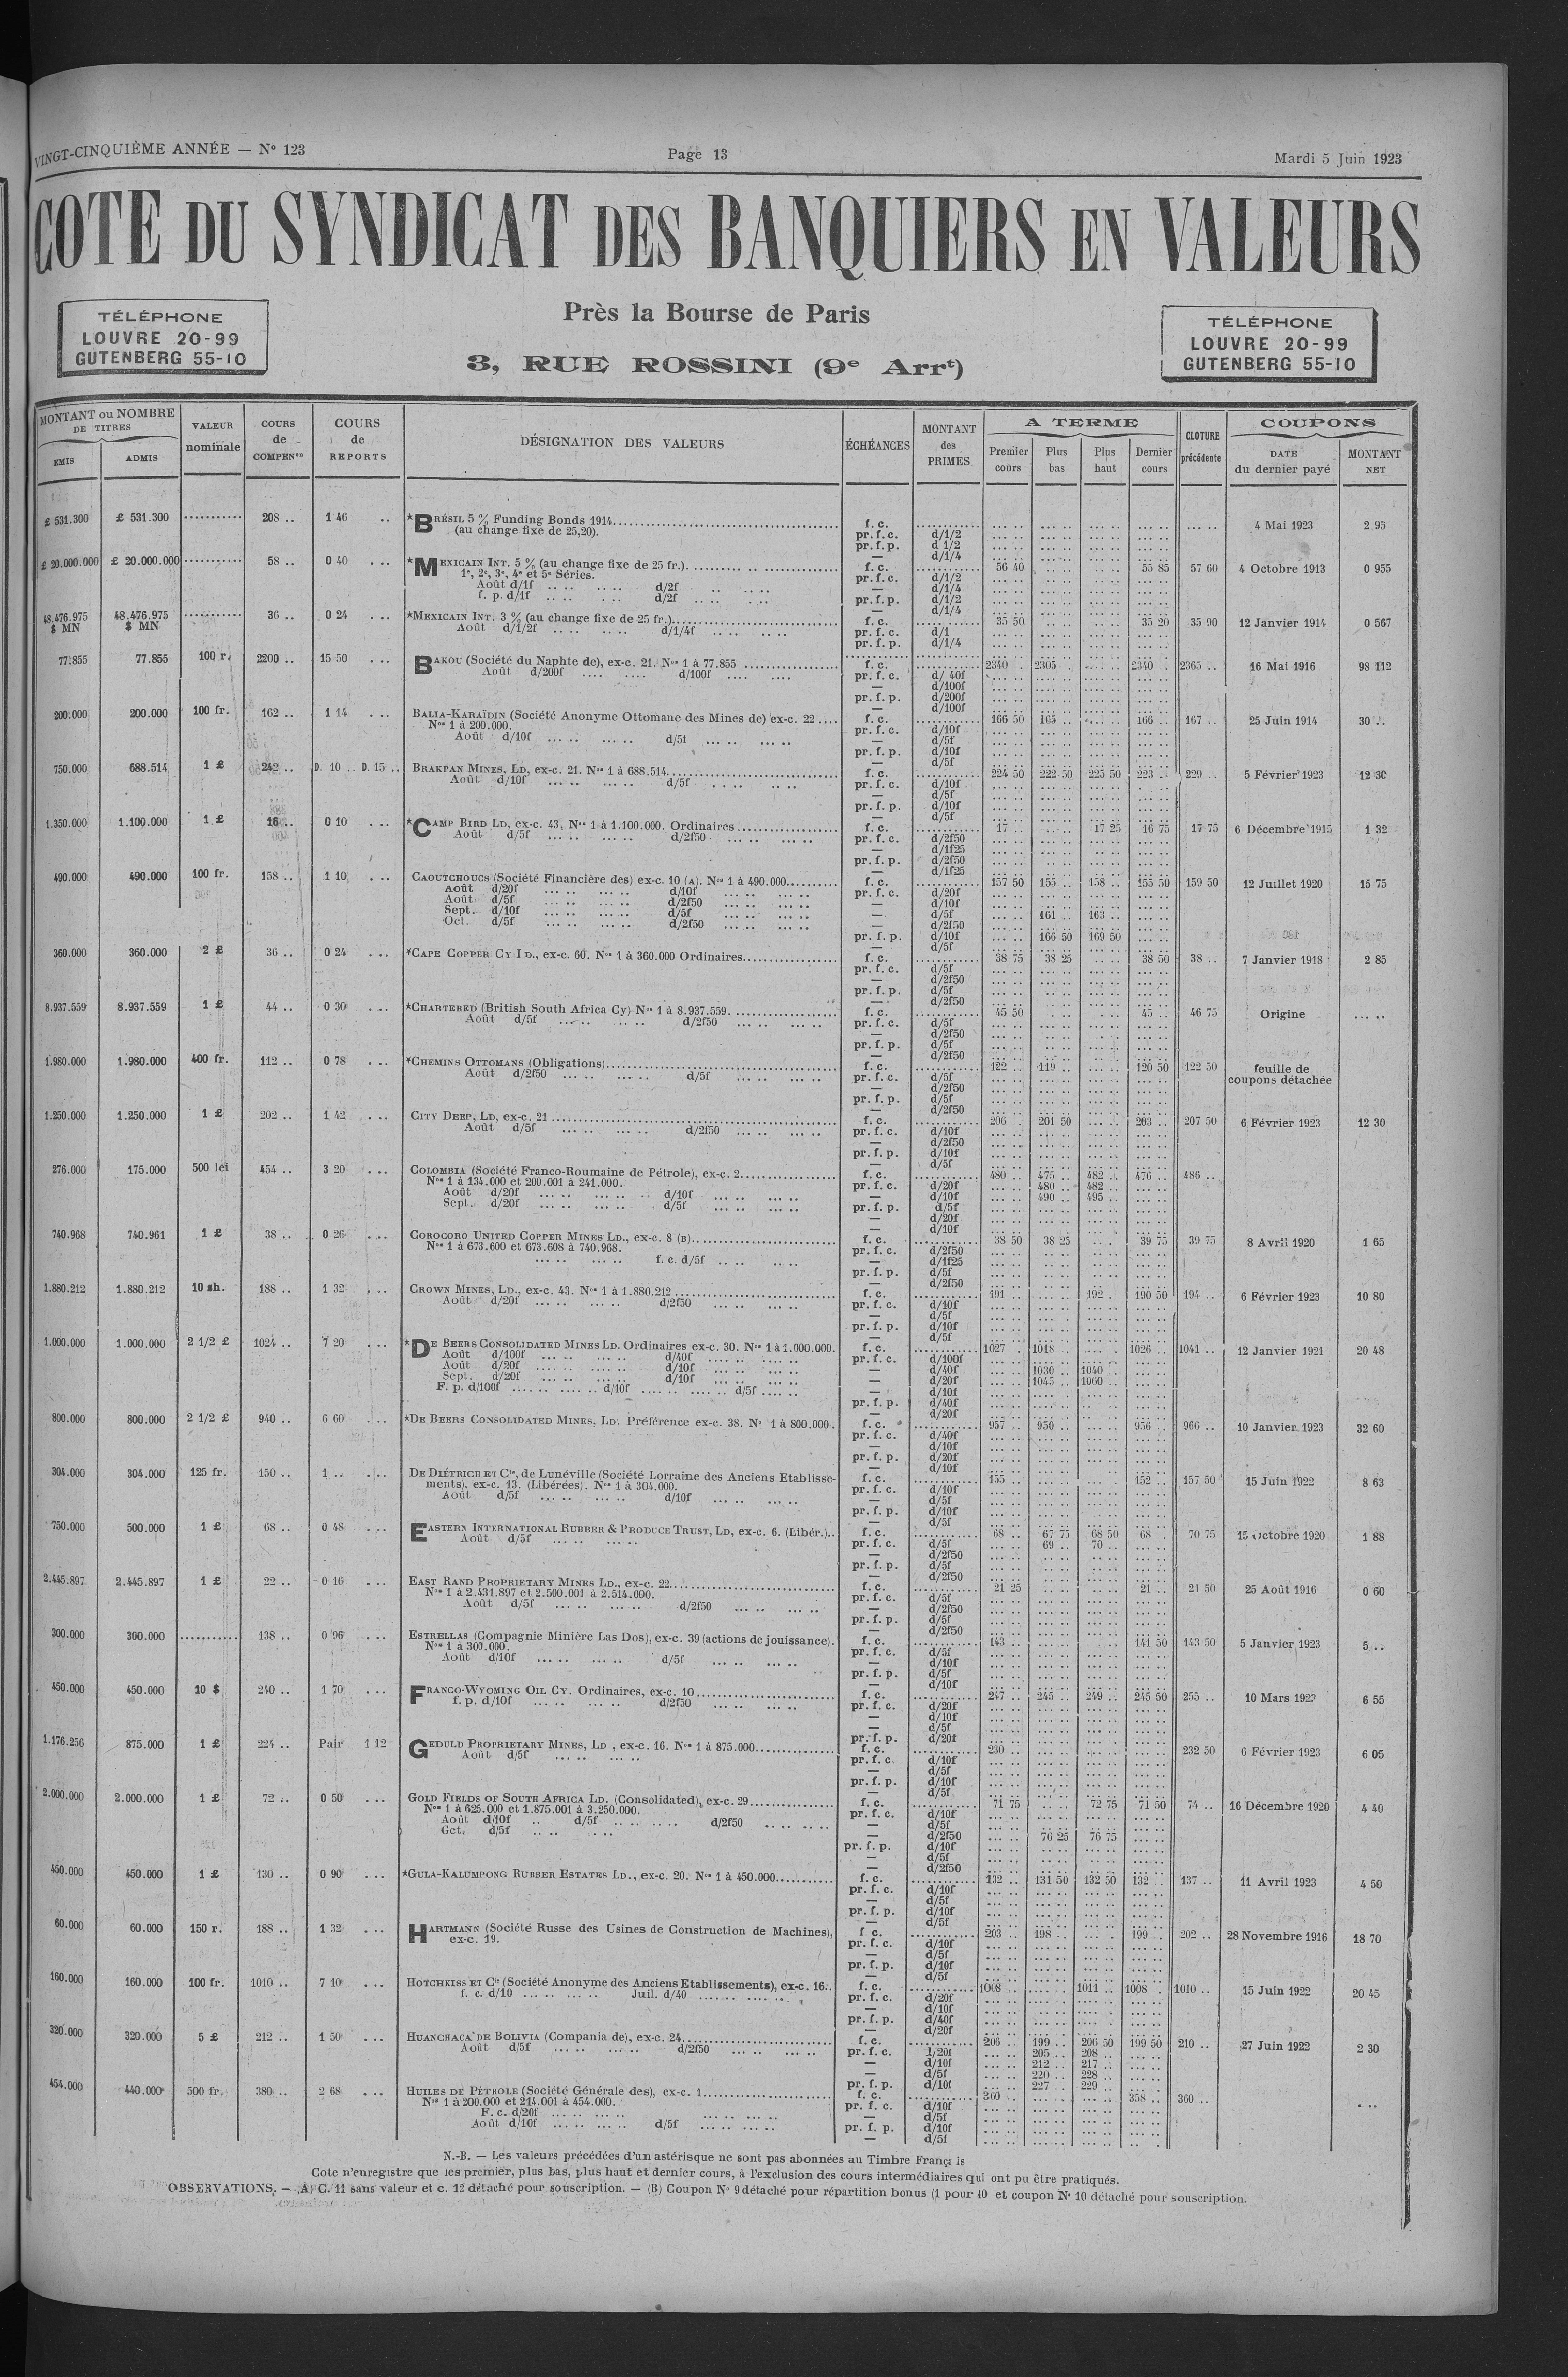 VINGT-CINQUIÈME ANNÉE — N° 123 Page 13 Mardi 5 Juin 1923
COTE DU SYNDICAT DES BANQUIERS EN VALEURS
Près la Bourse de Paris
3, RUE ROSSINI (9e Arrt)
TÉLÉPHONE
LOUVRE 20-99
GUTENBERG 55-10
TÉLÉPHONE
LOUVRE 20-99
GUTENBERG 55-10
MONTANT ou NOMBRE DE TITRES ÉMIS ADMIS VALEUR nominale COURS de COMPENon COURS de REPORTS DÉSIGNATION DES VALEURS ÉCHÉANCES MONTANT des PRIMES A TERME Premier cours Plus bas Plus haut Dernier cours CLOTURE précédente COUPONS DATE du dernier payé MONTANT NET
£ 531.300 £ 531.300 .......... 208 .. 1 46 .. *BRÉSIL 5 % Funding Bonds 1914 f. c. 4 Mai 1923 2 95
(au change fixe de 25,20). pr. f. c. d/1/2
pr. f. p. d 1/2
— d/1/4
£ 20.000.000 £ 20.000.000 .......... 58 .. 0 40 ... *MEXICAIN INT. 5 % (au change fixe de 25 fr.) f. c. 56 40 55 85 57 60 4 Octobre 1913 0 955
1e, 2e, 3e, 4e et 5e Séries. pr. f. c. d/1/2
Août d/1f d/2f — d/1/4
f. p. d/1f d/2f pr. f. p. d/1/2
— d/1/4
48.476.975 $ MN 48.476.975 $ MN .......... 36 .. 0 24 ... *MEXICAIN INT. 3 % (au change fixe de 25 fr.) f. c. 35 50 35 20 35 90 12 Janvier 1914 0 567
Août d/1/2f d/1/4f pr. f. c. d/1
pr. f. p. d/1/4
77.855 77.855 100 r. 2200 .. 15 50 ... BAKOU (Société du Naphte de), ex-c. 21. Nos 1 à 77.855 f. c. 2340 2305 2340 2365 .. 16 Mai 1916 98 112
Août d/200f d/100f pr. f. c. d/ 40f
— d/100f
pr. f. p. d/200f
— d/100f
200.000 200.000 100 fr. 162 .. 1 14 ... BALIA-KARAÏDIN (Société Anonyme Ottomane des Mines de) ex-c. 22 f. c. 166 50 165 .. 166 .. 167 .. 25 Juin 1914 30 ..
Nos 1 à 200.000. pr. f. c. d/10f
Août d/10f d/5f — d/5f
pr. f. p. d/10f
— d/5f
750.000 688.514 1 £ 242 .. D. 10 .. D. 15 .. BRAKPAN MINES, LD, ex-c. 21. Nos 1 à 688.514 f. c. 224 50 222 50 225 50 223 .. 229 .. 5 Février 1923 12 30
Août d/10f d/5f pr. f. c. d/10f
— d/5f
pr. f. p. d/10f
— d/5f
1.350.000 1.100.000 1 £ 16 .. 0 10 ... *CAMP BIRD LD, ex-c. 43, Nos 1 à 1.100.000. Ordinaires f. c. 17 .. 17 25 16 75 17 75 6 Décembre 1915 1 32
Août d/5f d/2f50 pr. f. c. d/2f50
— d/1f25
pr. f. p. d/2f50
— d/1f25
490.000 490.000 100 fr. 158 .. 1 10 ... CAOUTCHOUCS (Société Financière des) ex-c. 10 (A). Nos 1 à 490.000 f. c. 157 50 155 .. 158 .. 155 50 159 50 12 Juillet 1920 15 75
Août d/20f d/10f pr. f. c. d/20f
Août d/5f d/2f50 — d/10f
Sept. d/10f d/5f — d/5f 161 .. 163 ..
Oct. d/5f d/2f50 — d/2f50
pr. f. p. d/10f 166 50 169 50
— d/5f
360.000 360.000 2 £ 36 .. 0 24 ... *CAPE COPPER CY LD., ex-c. 60. Nos 1 à 360.000 Ordinaires f. c. 38 75 38 25 38 50 38 .. 7 Janvier 1918 2 85
pr. f. c. d/5f
— d/2f50
pr. f. p. d/5f
— d/2f50
8.937.559 8.937.559 1 £ 44 .. 0 30 ... *CHARTERED (British South Africa Cy) Nos 1 à 8.937.559 f. c. 45 50 45 .. 46 75 Origine ... ..
Août d/5f d/2f50 pr. f. c. d/5f
— d/2f50
pr. f. p. d/5f
— d/2f50
1.980.000 1.980.000 400 fr. 112 .. 0 78 ... *CHEMINS OTTOMANS (Obligations) f. c. 122 .. 119 .. 120 50 122 50 feuille de coupons détachée
Août d/2f50 d/5f pr. f. c. d/5f
— d/2f50
pr. f. p. d/5f
— d/2f50
1.250.000 1.250.000 1 £ 202 .. 1 42 ... CITY DEEP, LD, ex-c. 21 f. c. 206 201 50 203 .. 207 50 6 Février 1923 12 30
Août d/5f d/2f50 pr. f. c. d/10f
— d/2f50
pr. f. p. d/10f
— d/5f
276.000 175.000 500 lei 454 .. 3 20 ... COLOMBIA (Société Franco-Roumaine de Pétrole), ex-c. 2 f. c. 480 .. 475 .. 482 .. 476 .. 486 ..
Nos 1 à 134.000 et 200.001 à 241.000. pr. f. c. d/20f 480 .. 482 ..
Août d/20f d/10f — d/10f 490 .. 495 ..
Sept. d/20f d/5f pr. f. p. d/5f
— d/20f
— d/10f
740.968 740.961 1 £ 38 .. 0 26 ... COROCORO UNITED COPPER MINES LD., ex-c. 8 (B) f. c. 38 50 38 25 39 75 39 75 8 Avril 1920 1 65
Nos 1 à 673.600 et 673.608 à 740.968. pr. f. c. d/2f50
f. c. d/5f — d/1f25
pr. f. p. d/5f
— d/2f50
1.880.212 1.880.212 10 sh. 188 .. 1 32 ... CROWN MINES, LD., ex-c. 43. Nos 1 à 1.880.212 f. c. 191 .. 192 . 190 50 194 .. 6 Février 1923 10 80
Août d/20f d/2f50 pr. f. c. d/10f
— d/5f
pr. f. p. d/10f
— d/5f
1.000.000 1.000.000 2 1/2 £ 1024 .. 7 20 ... *DE BEERS CONSOLIDATED MINES LD. Ordinaires ex-c. 30. Nos 1 à 1.000.000. f. c. 1027 . 1018 .. 1026 .. 1041 .. 12 Janvier 1921 20 48
Août d/100f d/40f pr. f. c. d/100f
Août d/20f d/10f — d/40f 1030 .. 1040 ..
Sept. d/20f d/10f — d/20f 1045 .. 1060 ..
F. p. d/100f d/10f d/5f — d/10f
pr. f. p. d/40f
— d/20f
800.000 800.000 2 1/2 £ 940 .. 6 60 ... *DE BEERS CONSOLIDATED MINES, LD. Préférence ex-c. 38. No 1 à 800.000. f. c. 957 .. 950 .. 956 .. 966 .. 10 Janvier 1923 32 60
pr. f. c. d/40f
— d/10f
pr. f. p. d/20f
— d/10f
304.000 304.000 125 fr. 150 .. 1 .. ... DE DIÉTRICH ET Cie, de Lunéville (Société Lorraine des Anciens Etablisse- f. c. 155 .. 152 .. 157 50 15 Juin 1922 8 63
ments), ex-c. 13. (Libérées). Nos 1 à 304.000. pr. f. c. d/10f
Août d/5f d/10f — d/5f
pr. f. p. d/10f
— d/5f
750.000 500.000 1 £ 68 .. 0 48 ... EASTERN INTERNATIONAL RUBBER & PRODUCE TRUST, LD, ex-c. 6. (Libér.) f. c. 68 .. 67 75 68 50 68 .. 70 75 15 Octobre 1920 1 88
Août d/5f pr. f. c. d/5f 69 .. 70 ..
— d/2f50
pr. f. p. d/5f
— d/2f50
2.445.897 2.445.897 1 £ 22 .. 0 16 ... EAST RAND PROPRIETARY MINES LD., ex-c. 22 f. c. 21 25 21 .. 21 50 25 Août 1916 0 60
Nos 1 à 2.431.897 et 2.500.001 à 2.514.000. pr. f. c. d/5f
Août d/5f d/2f50 — d/2f50
pr. f. p. d/5f
— d/2f50
300.000 300.000 .......... 138 .. 0 96 ... ESTRELLAS (Compagnie Minière Las Dos), ex-c. 39 (actions de jouissance). f. c. 143 .. 141 50 143 50 5 Janvier 1923 5 ..
Nos 1 à 300.000. pr. f. c. d/5f
Août d/10f d/5f — d/10f
pr. f. p. d/5f
— d/10f
450.000 450.000 10 $ 240 .. 1 70 ... FRANCO-WYOMING OIL CY. Ordinaires, ex-c. 10 f. c. 247 .. 245 .. 249 .. 245 50 255 .. 10 Mars 1923 6 55
f. p. d/10f d/2f50 pr. f. c. d/20f
— d/10f
— d/5f
pr. f. p. d/20f
1.176.256 875.000 1 £ 224 .. Pair 1 12 GEDULD PROPRIETARY MINES, LD, ex-c. 16. Nos 1 à 875.000 f. c. 230 .. 232 50 6 Février 1923 6 05
Août d/5f pr. f. c. d/10f
— d/5f
pr. f. p. d/10f
— d/5f
2.000.000 2.000.000 1 £ 72 .. 0 50 ... GOLD FIELDS OF SOUTH AFRICA LD. (Consolidated), ex-c. 29 f. c. 71 75 72 75 71 50 74 .. 16 Décembre 1920 4 40
Nos 1 à 625.000 et 1.875.001 à 3.250.000. pr. f. c. d/10f
Août d/10f d/5f d/2f50 — d/5f
Oct. d/5f — d/2f50 76 25 76 75
pr. f. p. d/10f
— d/5f
— d/2f50
450.000 450.000 1 £ 130 .. 0 90 ... *GULA-KALUMPONG RUBBER ESTATES LD., ex-c. 20. Nos 1 à 450.000 f. c. 132 .. 131 50 132 50 132 .. 137 .. 11 Avril 1923 4 50
pr. f. c. d/10f
— d/5f
pr. f. p. d/10f
— d/5f
60.000 60.000 150 r. 188 .. 1 32 ... HARTMANN (Société Russe des Usines de Construction de Machines), f. c. 203 .. 198 .. 199 .. 202 .. 28 Novembre 1916 18 70
ex-c. 19. pr. f. c. d/10f
— d/5f
pr. f. p. d/10f
— d/5f
160.000 160.000 100 fr. 1010 .. 7 10 ... HOTCHKISS ET Cie (Société Anonyme des Anciens Etablissements), ex-c. 16 f. c. 1008 .. 1011 .. 1008 . 1010 .. 15 Juin 1922 20 45
f. c. d/10 Juil. d/40 pr. f. c. d/20f
— d/10f
pr. f. p. d/40f
— d/20f
320.000 320.000 5 £ 212 .. 1 50 ... HUANCHACA DE BOLIVIA (Compania de), ex-c. 24 f. c. 206 .. 199 .. 206 50 199 50 210 .. 27 Juin 1922 2 30
Août d/5f d/2f50 pr. f. c. d/20f 205 .. 208 ..
— d/10f 212 .. 217 ..
— d/5f 220 .. 228 ..
pr. f. p. d/10f 227 .. 229 ..
454.000 440.000 500 fr. 380 .. 2 68 ... HUILES DE PÉTROLE (Société Générale des), ex-c. 1 f. c. 360 .. 358 .. 360 ..
Nos 1 à 200.000 et 214.001 à 454.000. pr. f. c. d/10f
F. c. d/20f — d/5f
Août d/10f d/5f pr. f. p. d/10f
— d/5f
N.-B. — Les valeurs précédées d'un astérisque ne sont pas abonnées au Timbre Franç is
Cote n'enregistre que les premier, plus bas, plus haut et dernier cours, à l'exclusion des cours intermédiaires qui ont pu être pratiqués.
OBSERVATIONS. — (A) C. 11 sans valeur et c. 12 détaché pour souscription. — (B) Coupon No 9 détaché pour répartition bonus (1 pour 10 et coupon No 10 détaché pour souscription.